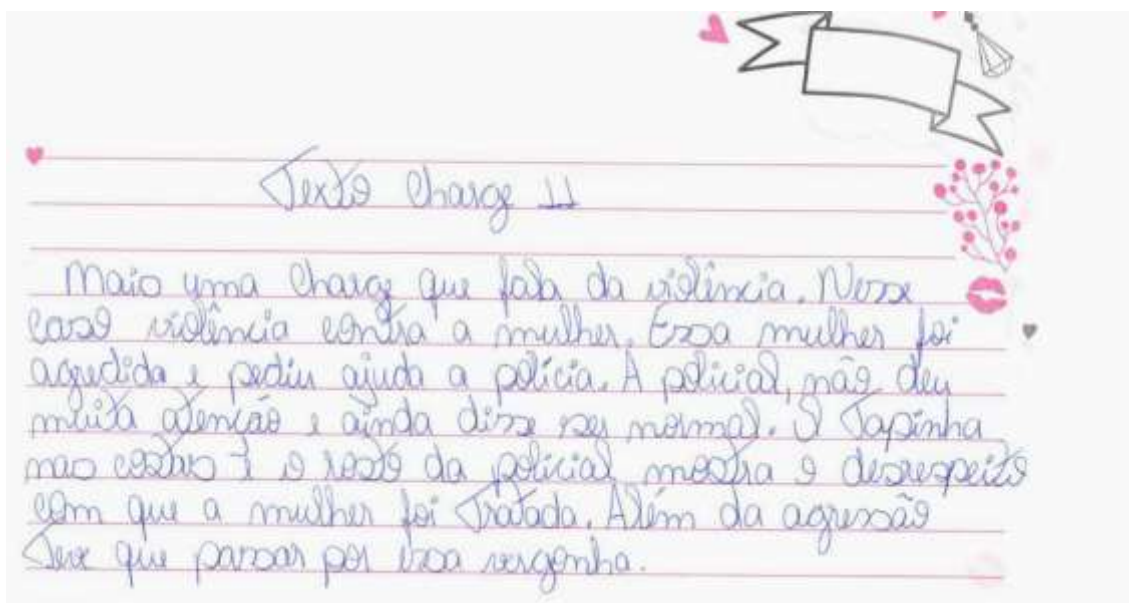 Texto Charge II
Mais uma charge que fala da violência. Nesse
caso violência contra a mulher. Essa mulher foi
agredida e pediu ajuda a polícia. A policial, não deu
muita atenção e ainda disse ser normal. O Tapinha
nas costas e o rosto da policial mostra o desrespeito
com que a mulher foi Tratada. Além da agressão
Teve que passar por essa vergonha.